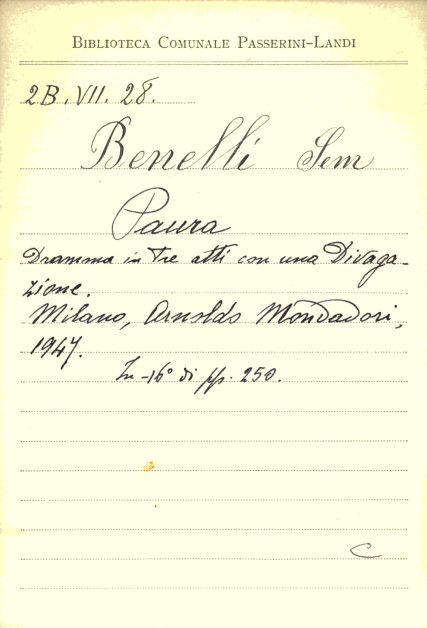 BIBLIOTECA COMUNALE PASSERINI-LANDI
2B.VII.28.
Benelli Sem
Paura
Dramma in tre atti con una Divaga-
zione.
Milano, Arnoldo Mondadori,
1947.
In-16° di pp. 250.
C